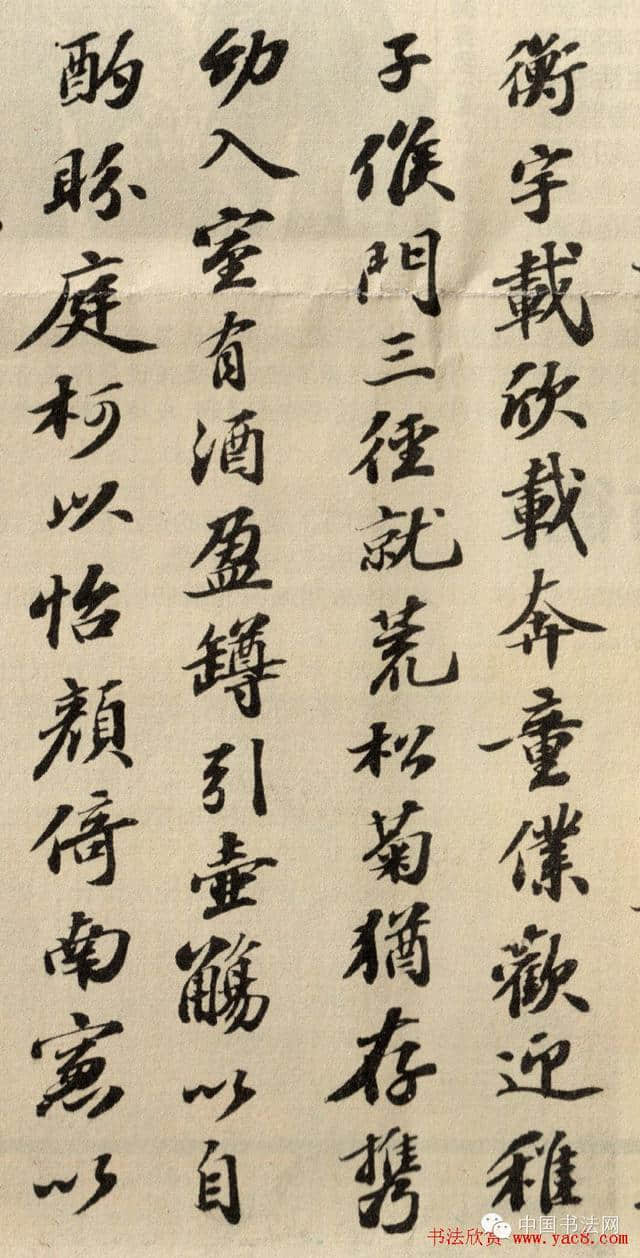 衡宇載欣載奔童僕歡迎稚
子候門三徑就荒松菊猶存携
幼入室有酒盈罇引壺觴以自
酌眄庭柯以怡顏倚南窓以
中国书法网
书法欣赏 www.yac8.com